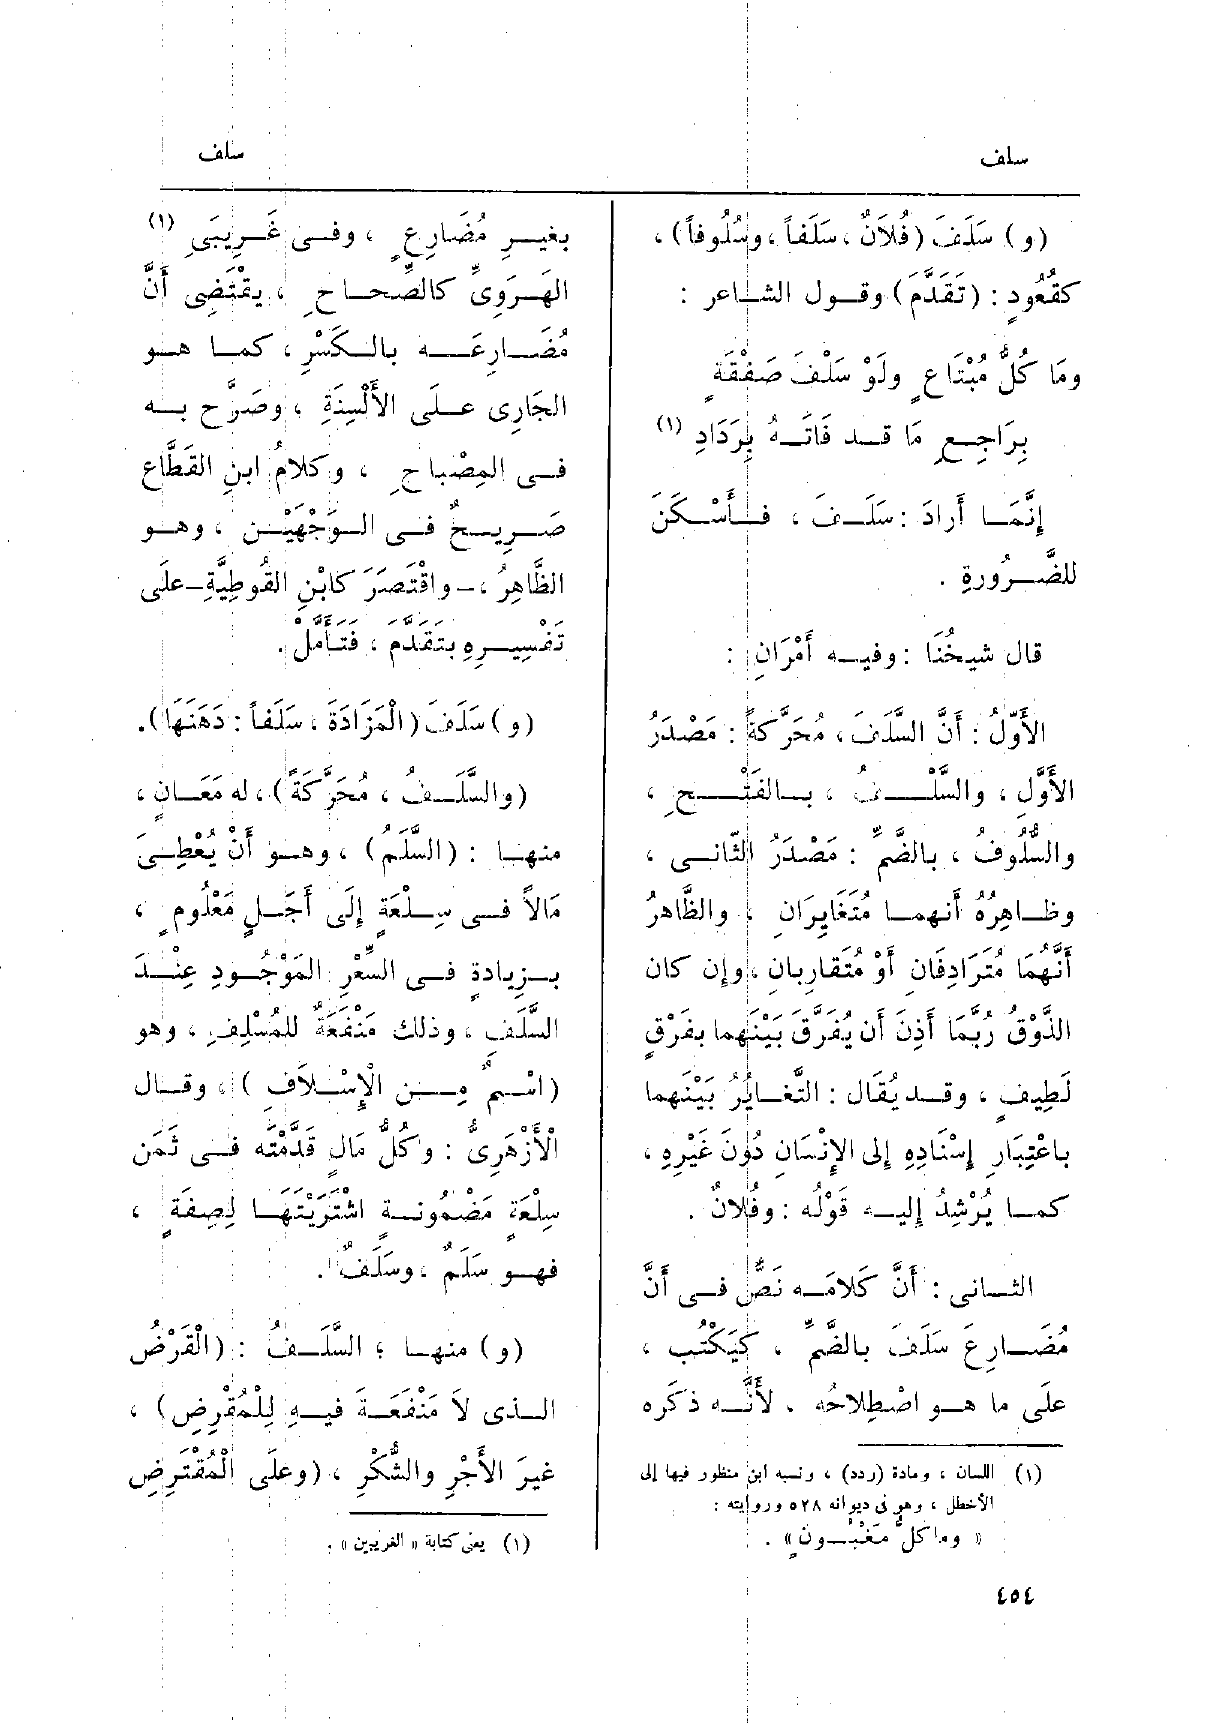 سلف
سلف
(و) سَلَفَ (فُلَانٌ، سَلَفاً، وسُلُوفاً)،
كقُعُودٍ : (تَقَدَّمَ) وقول الشاعر :
ومَا كُلُّ مُبْتَاعٍ ولَوْ سَلْفَ صَفْقَةٍ
بِرَاجِعِ مَا قد فَاتَهُ بِرَدَادِ (١)
إِنَّمَا أَرادَ : سَلَفَ ، فأَسْكَنَ
للضَّرُورةِ .
قال شيخُنَا : وفيه أَمْرَانِ :
الأَوّلُ : أَنَّ السَّلَفَ ، مُحَرَّكةً : مَصْدَرُ
الأَوَّلِ ، والسَّلْفُ ، بالفَتْحِ ،
والسُّلُوفُ ، بالضَّمِّ : مَصْدَرُ الثّانى ،
وظاهِرُهُ أَنهما مُتَغَايِرَانِ ، والظَّاهرُ
أَنَّهُمَا مُتَرَادِفَانِ أَوْ مُتَقارِبانِ ، وإِن كان
الذَّوْقُ رُبَّمَا أَذِنَ أَن يُفَرَّقَ بَيْنَهما بفَرْقٍ
لَطِيفٍ ، وقد يُقَال : التَّغايُرُ بَيْنَهما
باعْتِبَارِ إِسْنَادِهِ إِلى الإِنْسَانِ دُونَ غَيْرِهِ ،
كما يُرْشِدُ إِليه قَوْلُه : وفُلانٌ .
الثانى : أَنَّ كَلامَه نَصٌّ فى أَنَّ
مُضَارِعَ سَلَفَ بالضَّمِّ ، كيَكْتُب ،
علَى ما هو اصْطِلاحُه . لأَنَّه ذكَره
(١) اللسان ، ومادة (ردد) ، ونسبه ابن منظور فيها إلى
الأخطل ، وهو فى ديوانه ٥٢٨ وروايته :
« وما كلُّ مَغْبُونٍ » .
بغيرِ مُضَارِعٍ ، وفى غَرِيبَىِ (١)
الهَرَوِىِّ كالصِّحاحِ ، يقْتَضِى أَنَّ
مُضَارِعَه بالكَسْرِ ، كما هو
الجَارِى علَى الأَلْسِنَةِ ، وصَرَّح به
فى المِصْباحِ ، وكلامُ ابنِ القَطَّاع
صَرِيحٌ فى الوَجْهَيْن ، وهو
الظَّاهِرُ ، – واقْتَصَرَ كابْنِ القُوطِيَّةِ – علَى
تَفْسِيرِهِ بتَقَدَّمَ ، فَتَأَمَّلْ .
(و) سَلَفَ (الْمَزَادَةَ ، سَلَفاً : دَهَنَهَا ).
(والسَّلَفُ ، مُحَرَّكَةً) ، له مَعَانٍ ،
منها : (السَّلَمُ) ، وهو أَنْ يُعْطِىَ
مَالاً فى سِلْعَةٍ إِلَى أَجَلٍ مَعْلُومٍ ،
بزِيادةٍ فى السِّعْرِ المَوْجُودِ عِنْدَ
السَّلَفِ ، وذلك مَنْفَعَةٌ للمُسْلِفِ ، وهو
(اسْمٌ مِن الْإِسْلاَفِ ) ، وقال
الْأَزْهَرِىُّ : وكُلُّ مَالٍ قَدَّمْتَه فى ثَمَن
سِلْعَةٍ مَضْمُونةٍ اشْتَرَيْتَهَا لِصِفَةٍ ،
فهو سَلَمٌ ، وسَلَفٌ .
(و) منها ؛ السَّلَفُ : (الْقَرْضُ
الذى لاَ مَنْفَعَةَ فيهِ لِلْمُقْرِضِ) ،
غيرَ الأَجْرِ والشُّكْرِ ، (وعلَى الْمُقْتَرِضِ
(١) يعنى كتابة « الغريبين » .
٤٥٤